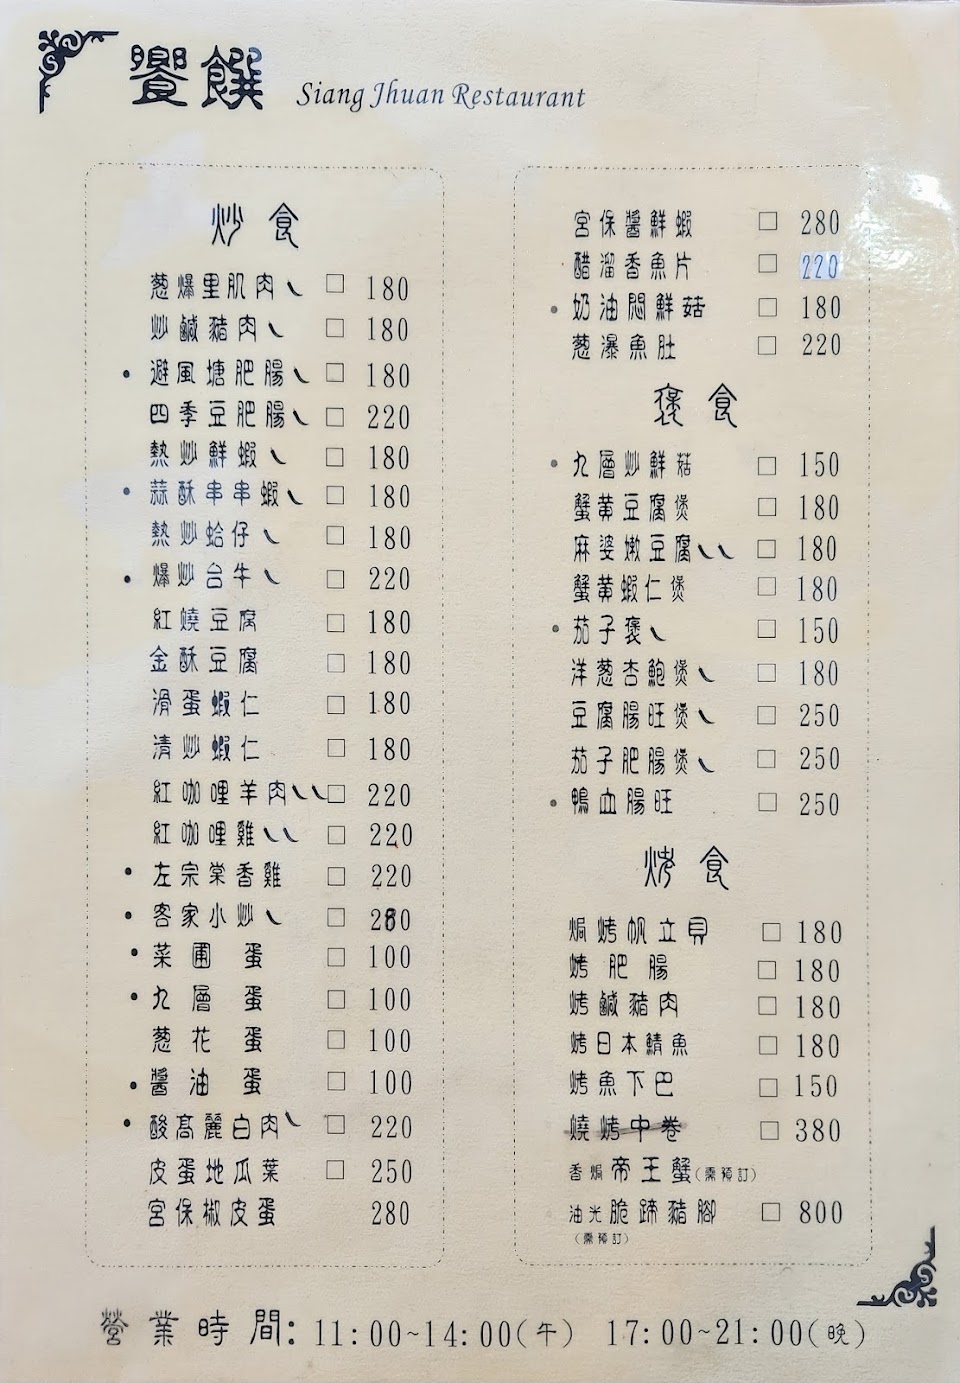 饗饌 Siang Jhuan Restaurant
炒食
葱爆里肌肉 □ 180
炒鹹豬肉 □ 180
• 避風塘肥腸 □ 180
四季豆肥腸 □ 220
熱炒鮮蝦 □ 180
• 蒜酥串串蝦 □ 180
熱炒蛤仔 □ 180
• 爆炒台牛 □ 220
紅燒豆腐 □ 180
金酥豆腐 □ 180
滑蛋蝦仁 □ 180
清炒蝦仁 □ 180
紅咖哩羊肉 □ 220
紅咖哩雞 □ 220
• 左宗棠香雞 □ 220
• 客家小炒 □
• 菜圃蛋 □ 100
• 九層蛋 □ 100
葱花蛋 □ 100
• 醬油蛋 □ 100
• 酸高麗白肉 □ 220
皮蛋地瓜葉 □ 250
宮保椒皮蛋 280
宮保醬鮮蝦 □ 280
醋溜香魚片 □ 220
• 奶油悶鮮菇 □ 180
葱瀑魚肚 □ 220
褒食
• 九層炒鮮菇 □ 150
蟹黄豆腐煲 □ 180
麻婆嫩豆腐 □ 180
蟹黄蝦仁煲 □ 180
• 茄子褒 □ 150
洋葱杏鮑煲 □ 180
豆腐腸旺煲 □ 250
茄子肥腸煲 □ 250
• 鴨血腸旺 □ 250
烤食
焗烤帆立貝 □ 180
烤肥腸 □ 180
烤鹹豬肉 □ 180
烤日本鯖魚 □ 180
烤魚下巴 □ 150
燒烤中卷 □ 380
香焗帝王蟹(需預訂)
油光脆蹄豬腳 □ 800
(需預訂)
營業時間: 11:00~14:00(午) 17:00~21:00(晚)